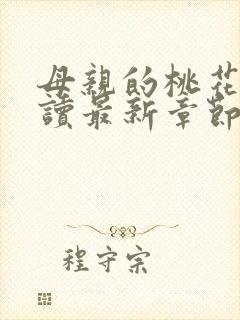 母親的桃花
讀最新章節
程守宗